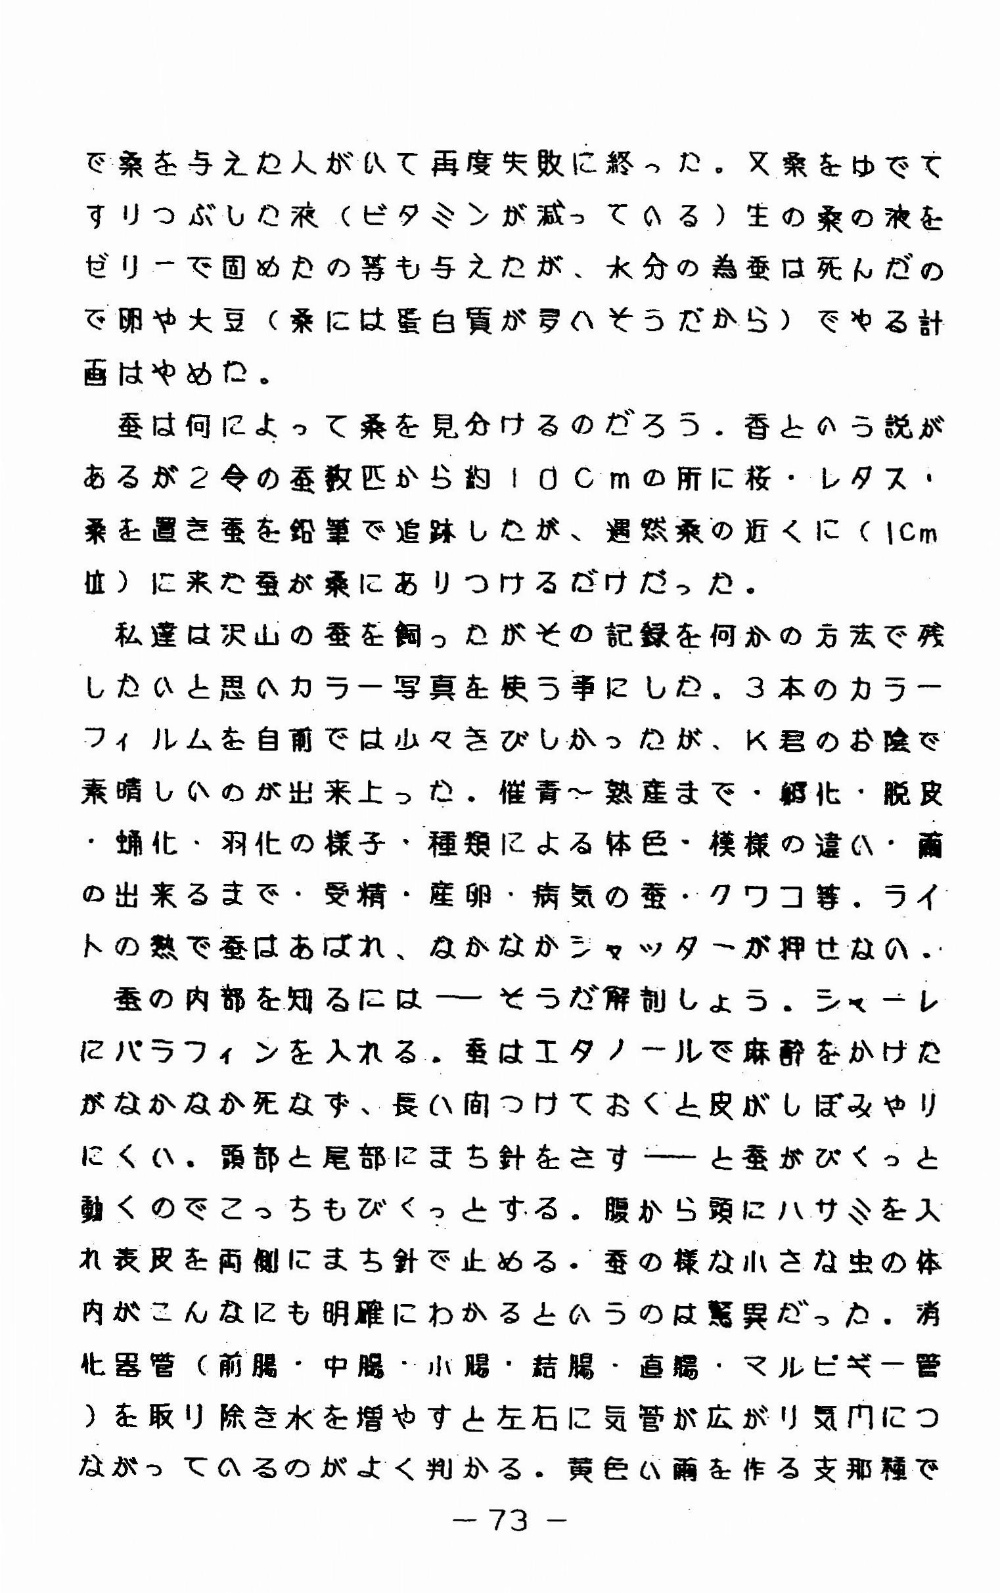 で桑を与えた人がいて再度失敗に終った。又桑をゆでて
すりつぶした液（ビタミンが減っている）生の桑の液を
ゼリーで固めたの等も与えたが、水分の為蚕は死んだの
で卵や大豆（桑には蛋白質が多いそうだから）でやる計
画はやめた。
　蚕は何によって桑を見分けるのだろう。香という説が
あるが２令の蚕数匹から約１０Ｃｍの所に桜・レタス・
桑を置き蚕を鉛筆で追跡したが、遇然桑の近くに（1Cm
位）に来た蚕が桑にありつけるだけだった。
　私達は沢山の蚕を飼ったがその記録を何かの方法で残
したいと思いカラー写真を使う事にした。３本のカラー
フィルムを自前では少々きびしかったが、Ｋ君のお陰で
素晴しいのが出来上った。催青～熟産まで・孵化・脱皮
・蛹化・羽化の様子・種類による体色・模様の違い・繭
の出来るまで・受精・産卵・病気の蚕・クワコ等。ライ
トの熱で蚕はあばれ、なかなかシャッターが押せない。
　蚕の内部を知るには――そうだ解剖しよう。シャーレ
にパラフィンを入れる。蚕はエタノールで麻酔をかけた
がなかなか死なず、長い間つけておくと皮がしぼみやり
にくい。頭部と尾部にまち針をさす――と蚕がびくっと
動くのでこっちもびくっとする。腹から頭にハサミを入
れ表皮を両側にまち針で止める。蚕の様な小さな虫の体
内がこんなにも明確にわかるというのは驚異だった。消
化器管（前腸・中腸・小腸・結腸・直腸・マルピギー管
）を取り除き水を増やすと左右に気管が広がり気門につ
ながっているのがよく判かる。黄色い繭を作る支那種で
－73－